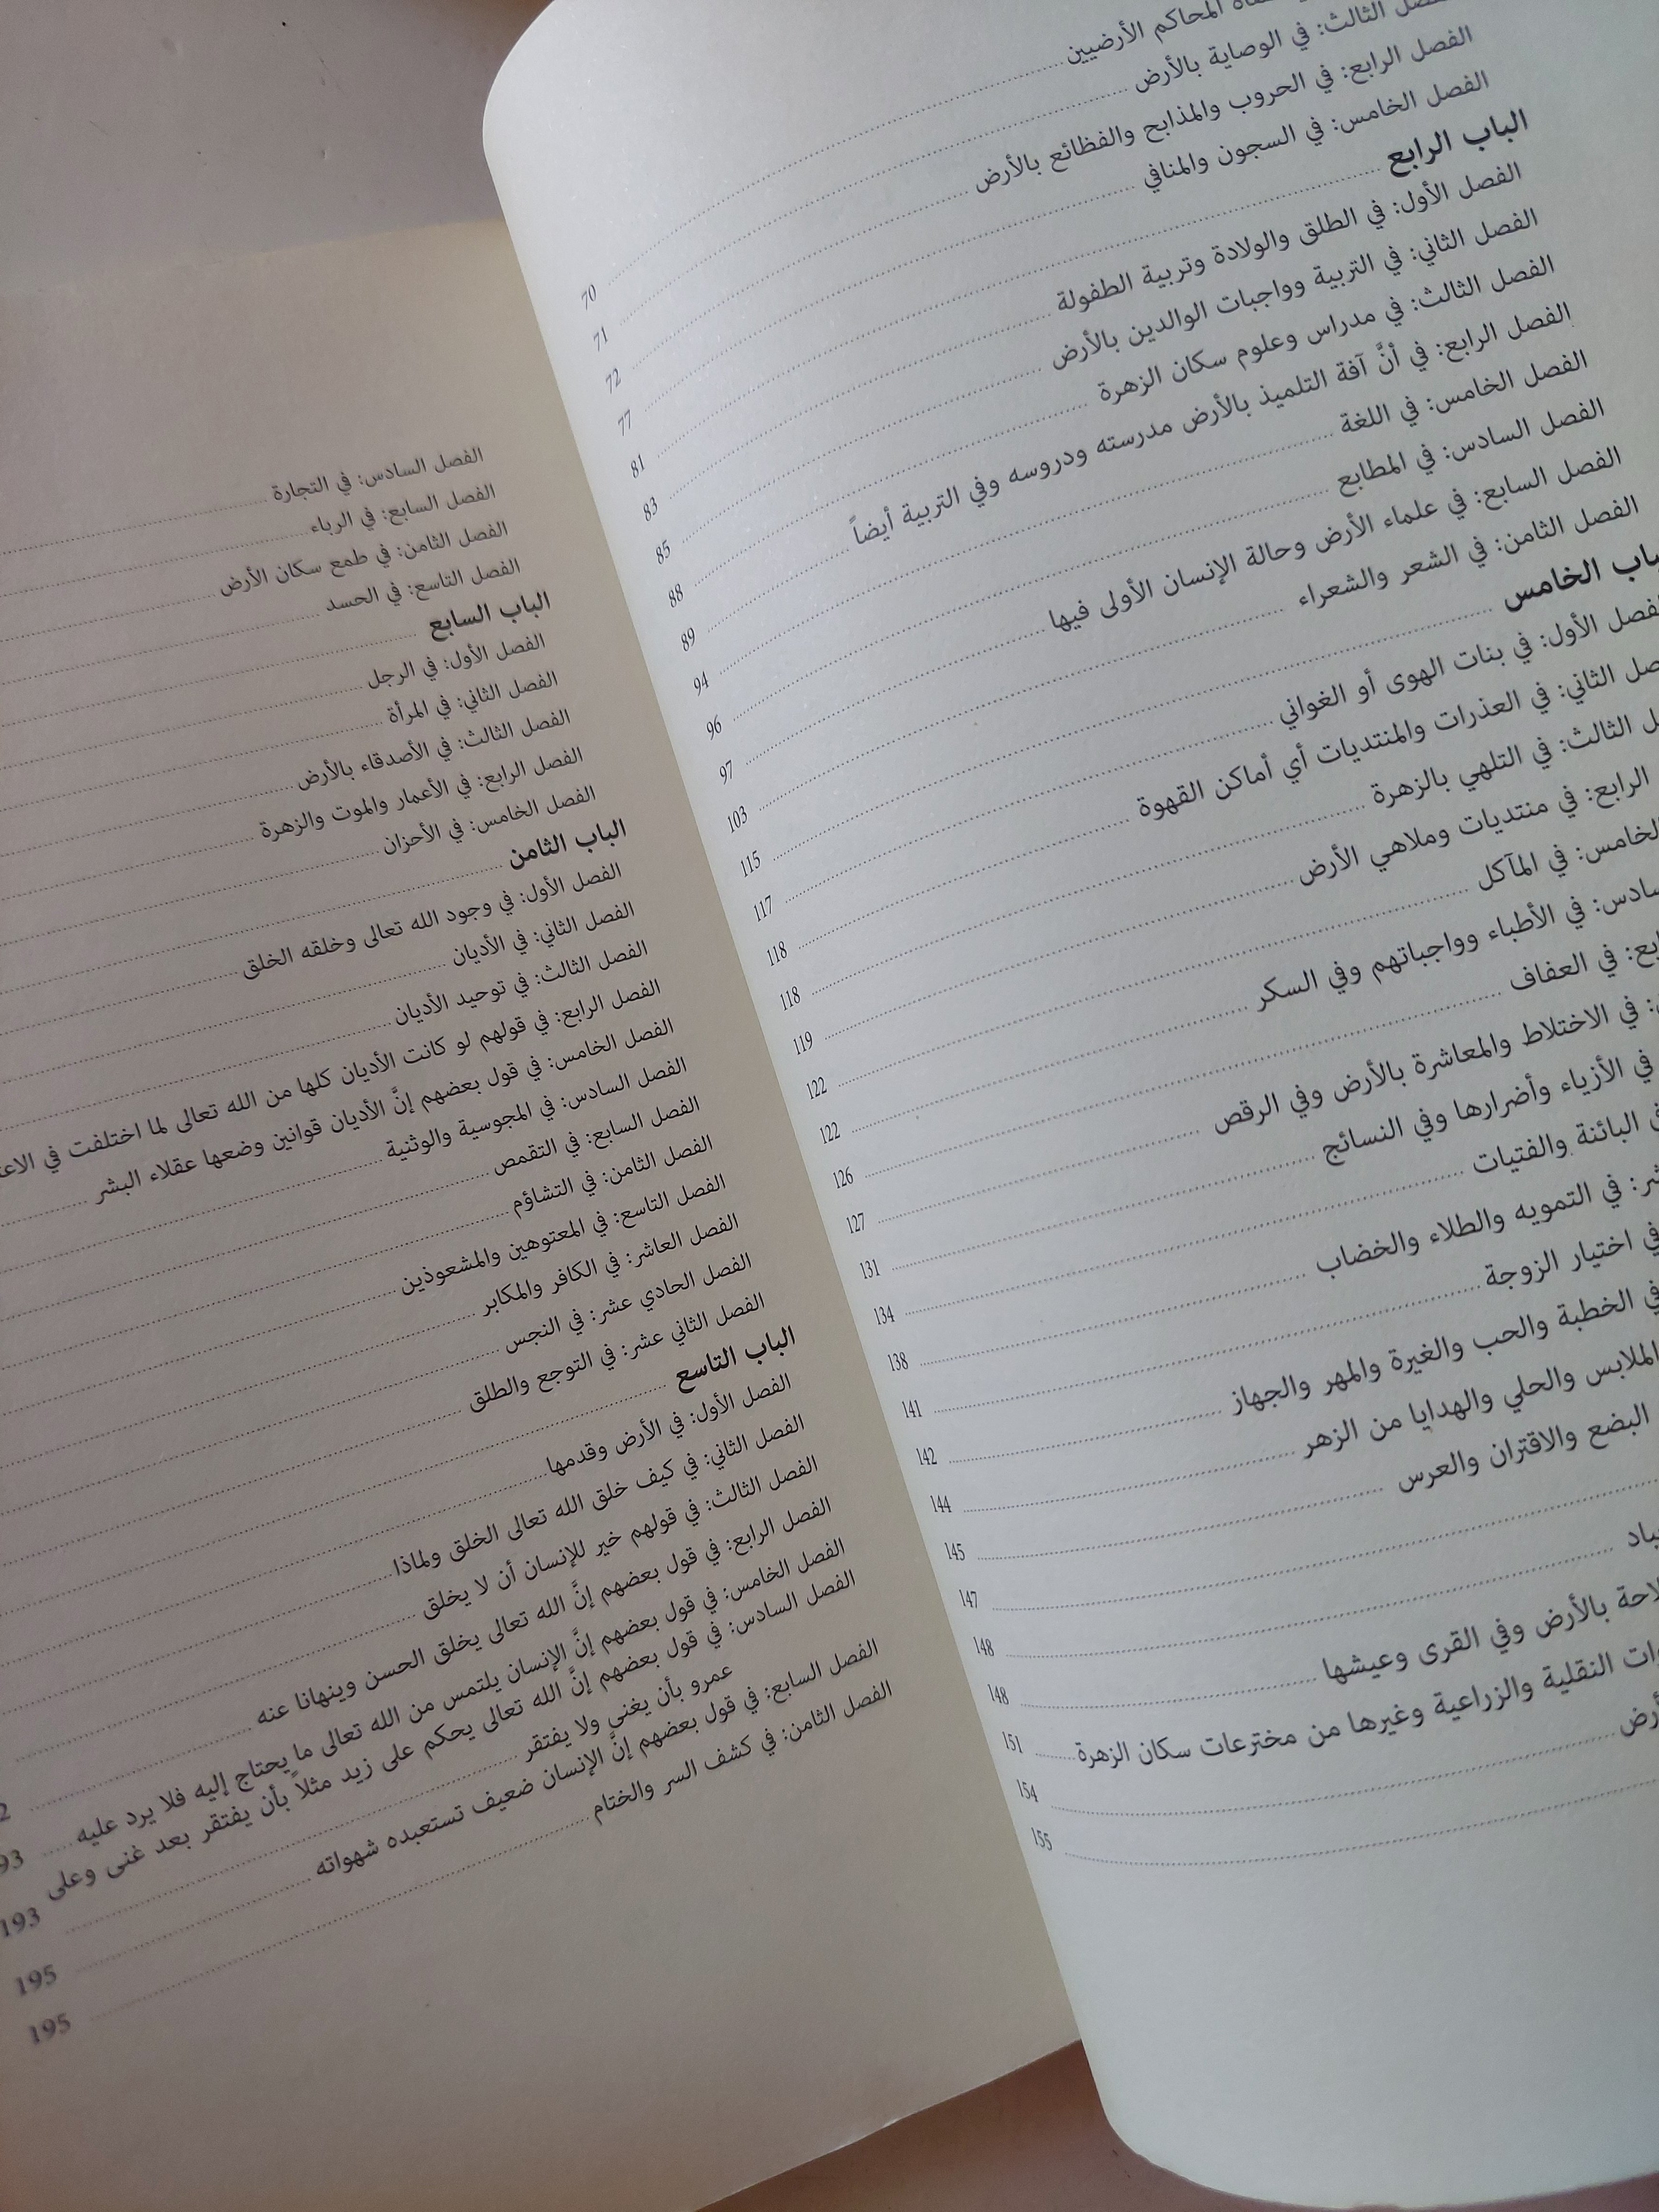 المحاكم الأرضيين 70
الفصل الثالث: في الوصاية بالأرض 71
الفصل الرابع: في الحروب والمذابح والفظائع بالأرض 72
الفصل الخامس: في السجون والمنافي 77
الباب الرابع 81
الفصل الأول: في الطلق والولادة وتربية الطفولة 83
الفصل الثاني: في التربية وواجبات الوالدين بالأرض 85
الفصل الثالث: في مدراس وعلوم سكان الزهرة 88
الفصل الرابع: في أنَّ آفة التلميذ بالأرض مدرسته ودروسه وفي التربية أيضاً 89
الفصل الخامس: في اللغة 94
الفصل السادس: في المطابع 96
الفصل السابع: في علماء الأرض وحالة الإنسان الأولى فيها 97
الفصل الثامن: في الشعر والشعراء 103
الباب الخامس 115
الفصل الأول: في بنات الهوى أو الغواني 117
الثاني: في العذرات والمنتديات أي أماكن القهوة 118
الثالث: في التلهي بالزهرة 118
الرابع: في منتديات وملاهي الأرض 119
الخامس: في المآكل 122
سادس: في الأطباء وواجباتهم وفي السكر 122
بع: في العفاف 126
: في الاختلاط والمعاشرة بالأرض وفي الرقص 127
في الأزياء وأضرارها وفي النسائج 131
البائنة والفتيات 134
شر: في التمويه والطلاء والخضاب 138
في اختيار الزوجة 141
في الخطبة والحب والغيرة والمهر والجهاز 142
الملابس والحلي والهدايا من الزهر 144
البضع والاقتران والعرس 145
147
ياد 148
لاحة بالأرض وفي القرى وعيشها 148
وات النقلية والزراعية وغيرها من مخترعات سكان الزهرة 151
رض 154
155
الفصل السادس: في التجارة
الفصل السابع: في الرباء
الفصل الثامن: في طمع سكان الأرض
الفصل التاسع: في الحسد
الباب السابع
الفصل الأول: في الرجل
الفصل الثاني: في المرأة
الفصل الثالث: في الأصدقاء بالأرض
الفصل الرابع: في الأعمار والموت والزهرة
الفصل الخامس: في الأحزان
الباب الثامن
الفصل الأول: في وجود الله تعالى وخلقه الخلق
الفصل الثاني: في الأديان
الفصل الثالث: في توحيد الأديان
الفصل الرابع: في قولهم لو كانت الأديان كلها من الله تعالى لما اختلفت في الاعت
الفصل الخامس: في قول بعضهم إنَّ الأديان قوانين وضعها عقلاء البشر
الفصل السادس: في المجوسية والوثنية
الفصل السابع: في التقمص
الفصل الثامن: في التشاؤم
الفصل التاسع: في المعتوهين والمشعوذين
الفصل العاشر: في الكافر والمكابر
الفصل الحادي عشر: في النجس
الفصل الثاني عشر: في التوجع والطلق
الباب التاسع
الفصل الأول: في الأرض وقدمها
الفصل الثاني: في كيف خلق الله تعالى الخلق ولماذا
الفصل الثالث: في قولهم خير للإنسان أن لا يخلق
الفصل الرابع: في قول بعضهم إنَّ الله تعالى يخلق الحسن وينهانا عنه 2
الفصل الخامس: في قول بعضهم إنَّ الإنسان يلتمس من الله تعالى ما يحتاج إليه فلا يرد عليه 93
الفصل السادس: في قول بعضهم إنَّ الله تعالى يحكم على زيد مثلاً بأن يفتقر بعد غنى وعلى
عمرو بأن يغنى ولا يفتقر 193
الفصل السابع: في قول بعضهم إنَّ الإنسان ضعيف تستعبده شهواته 195
الفصل الثامن: في كشف السر والختام 195